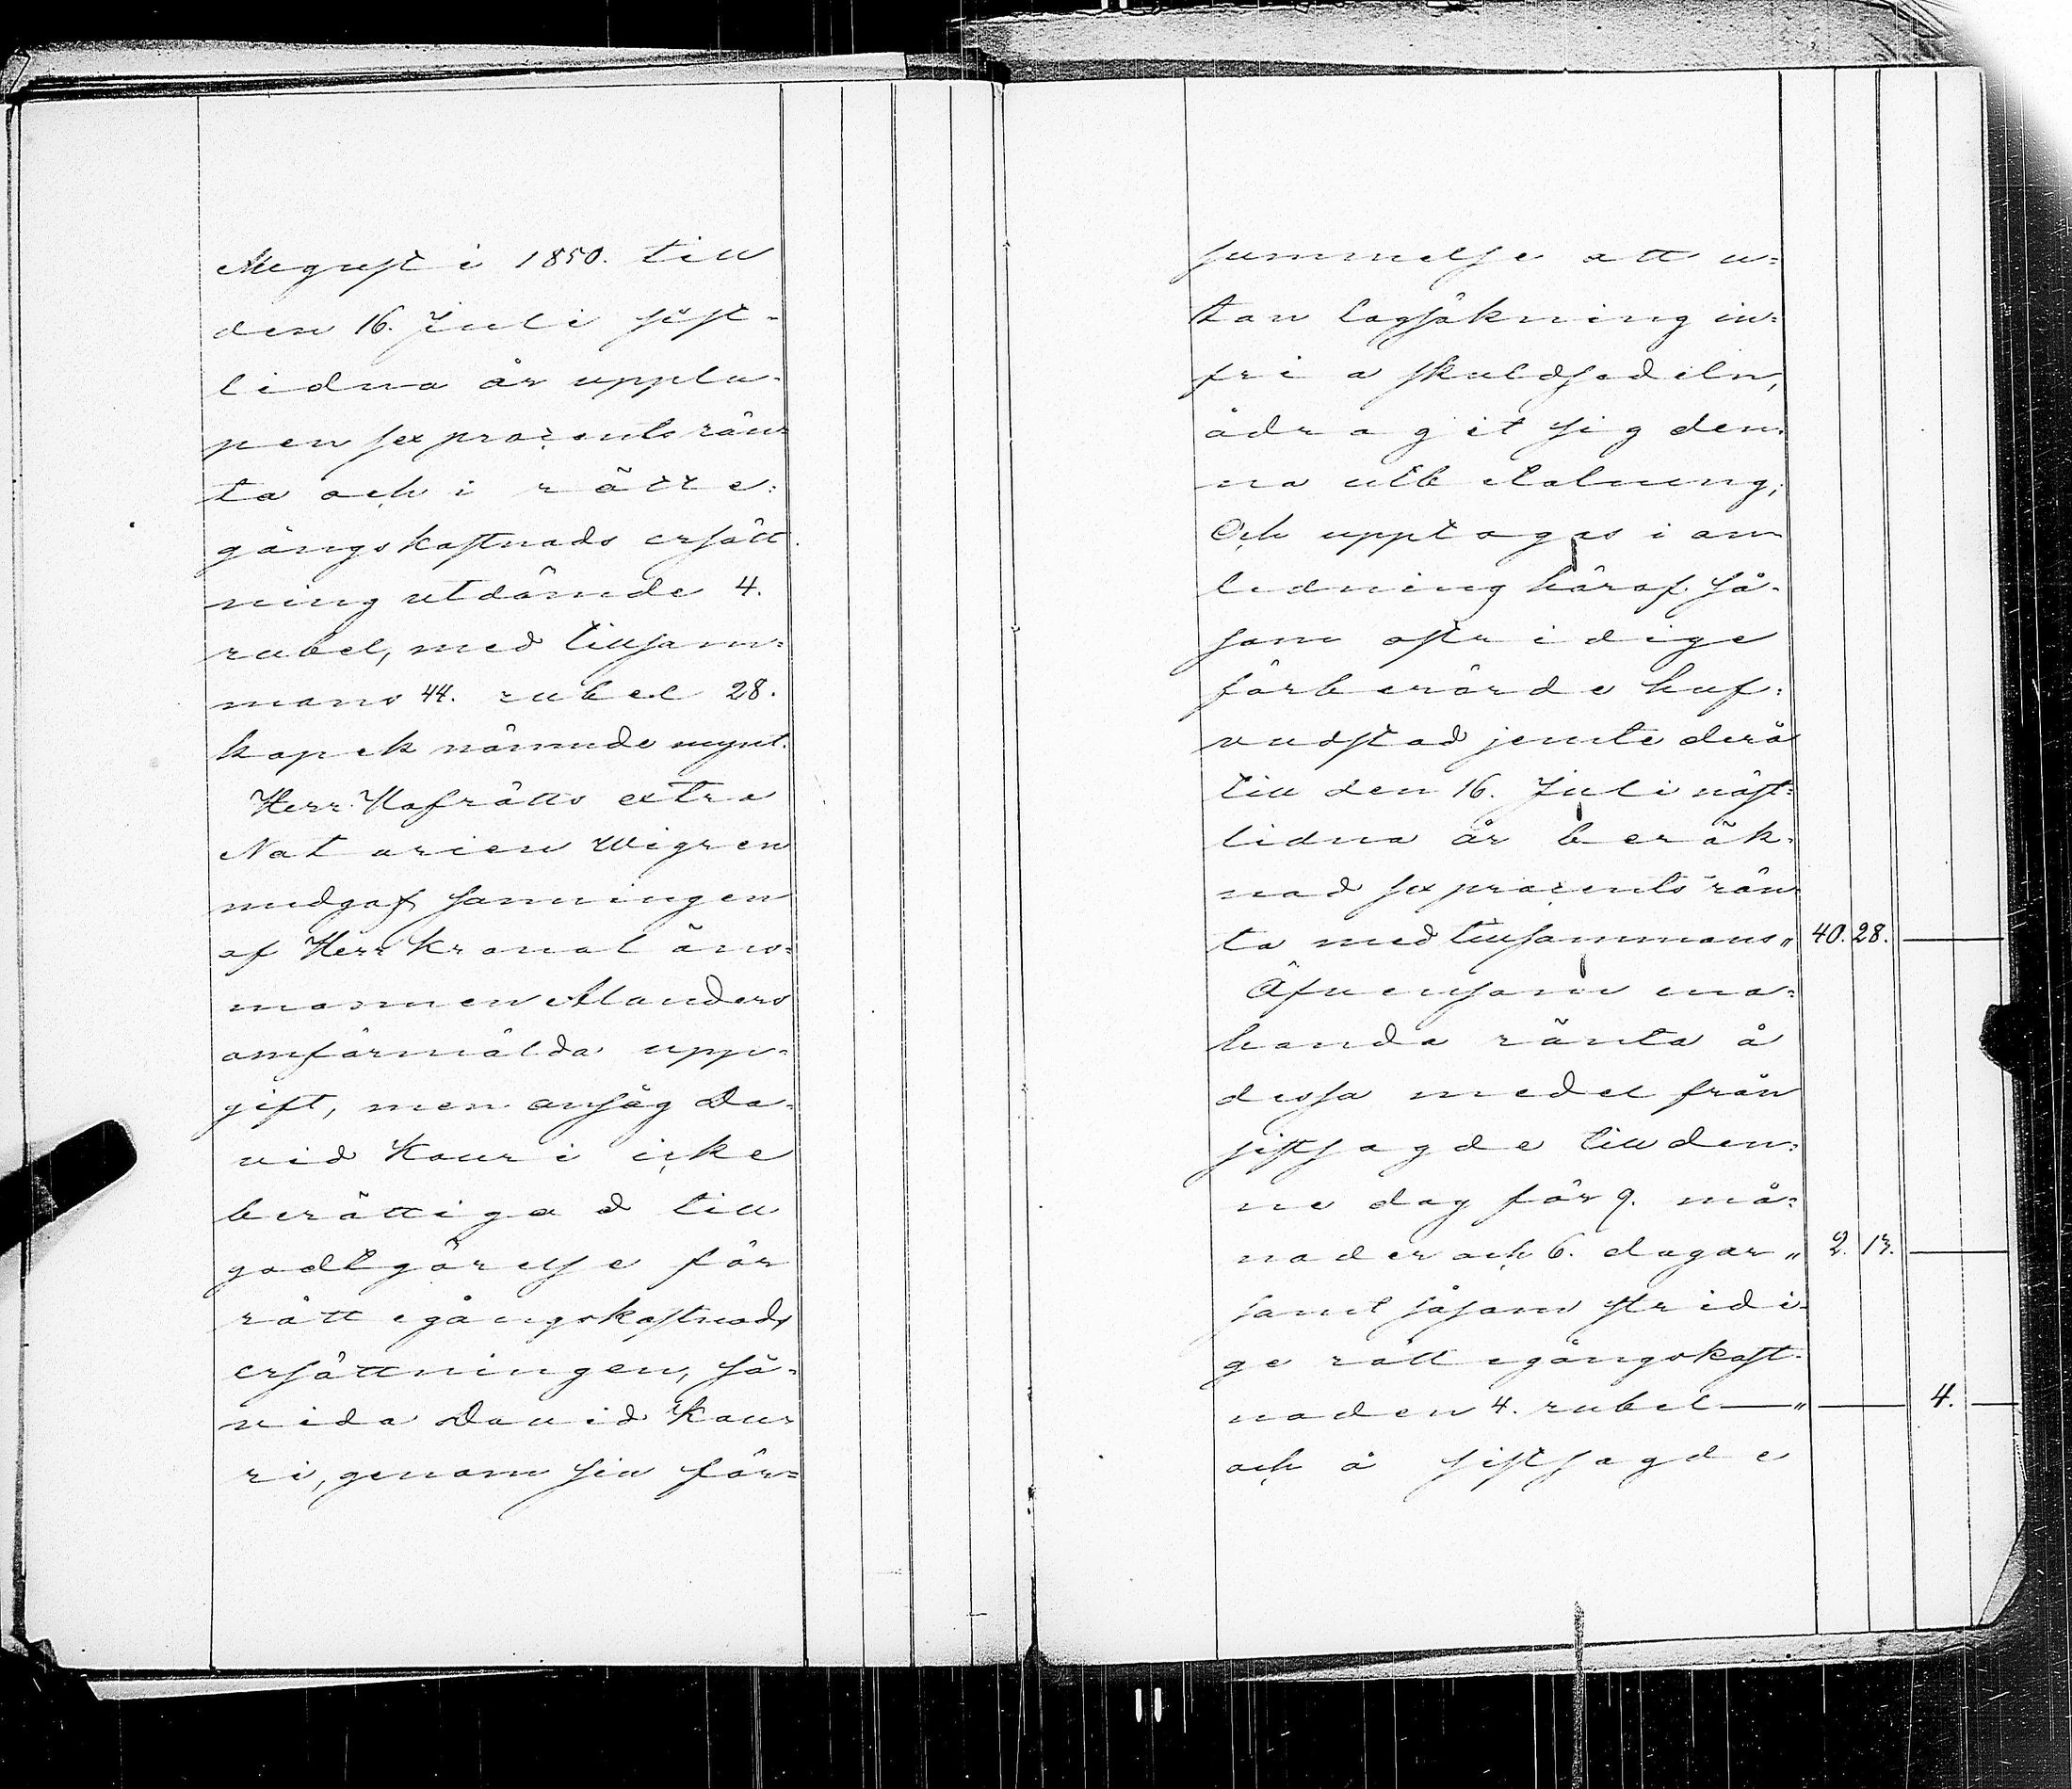 August i 1850. till
den 16. Juli sist-
lidna år upplu-
pen sex procents rän-
ta och i rätte-
gångskostnads ersätt-
ning utdömde 4.
rubel, med tillsam-
mans 44. rubel 28.
kopek nämnde mynt.
Herr Hofrätts extra
Notarien Wigren
medgaf sanningen
af Herr Kronoläns-
mannen Alanders
omförmälda upp-
gift, men ansåg Da-
vid Kauri icke
berättigad till
godtgörelse för
rättegångskostnads
ersättningen, så-
vida David Kau-
ri, genom sin för-
summelse att u-
tan lagsökning in-
fria skuldsedeln,
ådragit sig den-
na utbetalning;
Och upptages i an-
ledning häraf så-
som ostridige
förberörde huf-
vudstad jemte derå
till den 16. Juli näst-
lidna år beräk-
nad sex procents rän-
ta med tillsammans " 40. 28.
Äfvensom ena-
handa ränta å
dessa medel från
sistsagde till den-
ne dag för 9. må-
nader och 6. dagar " 2. 13.
samt såsom stridi-
ge rättegångskost-
naden 4. rubel — " 4.
och å sistsagde